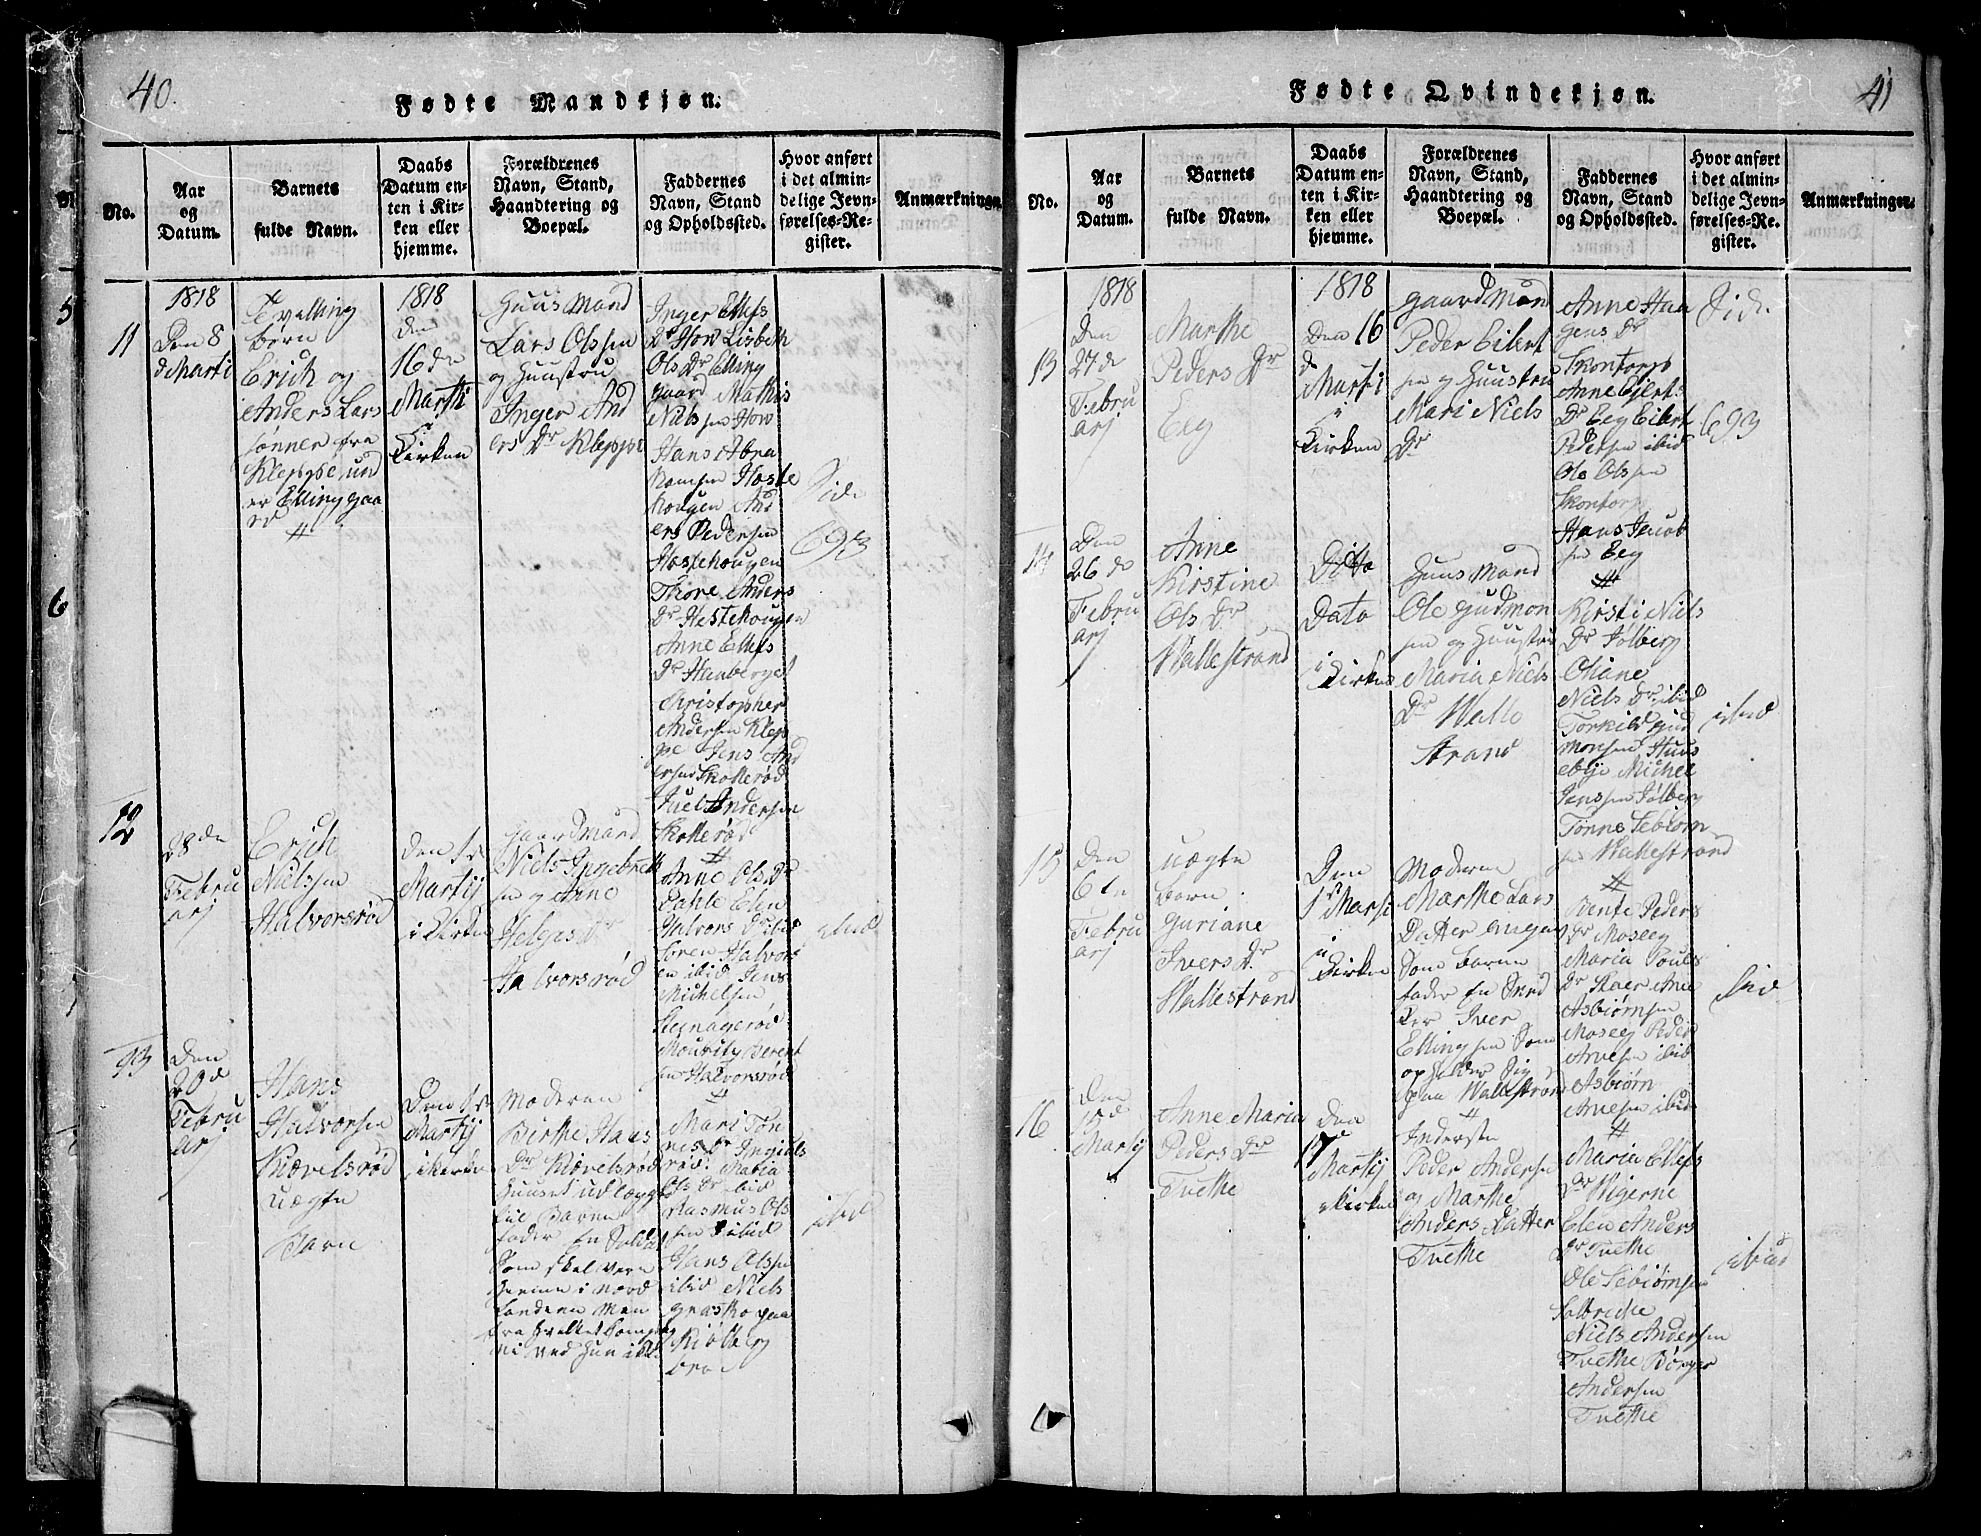 40.
Fødte Mandkjøn.
No.
Aar
og
Datum.
Barnets
fulde Navn.
Daabs
Datum en-
ten i Kir-
ken eller
hjemme.
Forældrenes
Navn, Stand,
Haandtering og
Boepæl.
Faddernes
Navn, Stand
og Opholdssted.
Hvor anført
i det almin-
delige Jevn-
førelses-Re-
gister.
Anmærkninger.
11
1818
Den 8
de Marti
Tvilling
børn
Erich og
Anders Lars
sønner fra
Kleppe und
er Elling gaa
rd
1818
den
16 de
Marti
i
Kirken
Huus Mand
Lars Olssen
og Huustru
Inger And
ers Dr Kleppe
Inger Ellefs
Dr How Lisbeth
Ols Dr Elling
gaard Mathis
Nielssen How
Hans Abra
hamsen Heste
hougen And
ers Pedersen
Hestehougen
Thore Anders
Dr Hestehougen
Anne Ellefs
Dr Hauberget
Christopher
Andersen Klep
pe Jens And
ersen Skotterød
Juel Andersen
Skotterød
Side
693
12
28 de
Febru
arj
Erich
Nielssen
Halvorsrød
den 1te
Martij
i Kirken
Gaardmand
Niels Ingebreth
sen og Anne
Helges Dr
Halvorsrød
Anne Ols Dr
Dahle Elen
Halvors Dr ibid
Søren Halvors
en ibid Jens
Michelsen
Stenagerød
Mouritz Berent
sen Halvorsrød
ibid
13
Den
20 d
Febru
arj
Hans
Halvorsen
Kiævelsrød
uægte
Barn
Den 1te
Martij
i Kirken
Moderen
Birthe Hans
Dr Kiævelsrød
Huuset udlægger
til Baren
fader en Soldat
Som skal være
hiemme i Nord
landene Men
fra hvilket Compag
ni ved hun ikke
Mari Tøn
nes Dr Ingiels
rød Maria
Ols Dr ibid
Rasmus Ols
sen ibid
Hans Olssen
ibid Niels
græsko paa
Kiølberg
bro
ibid
41
Fødte Qvindekjøn.
No.
Aar
og
Datum.
Barnets
fulde Navn.
Daabs
Datum en-
ten i Kir-
ken eller
hjemme.
Forældrenes
Navn, Stand,
Haandtering og
Boepæl.
Faddernes
Navn, Stand
og Opholdssted.
Hvor anført
i det almin-
delige Jevn-
førelses-Re-
gister.
Anmærkninger.
13
1818
Den
27 de
Febru
arj
Marthe
Peders Dr
Eeg
1818
Den 16
d
Marti
i
Kirken
Gaardmand
Peder Eilert
sen og Huustru
Mari Niels
Dr
Anne Haa
gens Dr
Skontorp
Anne Eilerts
Dr Eeg Eilert
Pedersen ibid
Ole Olssen
Skontorp
Hans Jacob
sen Eeg
Side
693
14
Den
26 de
Febru
arj
Anne
Kirstine
Ols Dr
Wallestrand
Ditto
Dato
i
Kirken
Huus Mand
Ole Gudmon
sen og Huustru
Maria Niels
Dr Walle
strand
Kirsti Niels
Dr Sølberg
Oliane
Niels Dr ibid
Torkild Gud
monsen Huus
ebye Michel
Jenssen Sølberg
Tønne Sebiørn
sen Wallestrand
ibid
15
Den
6 te
Febru
arj
uægte
Barn
Guriane
Ivers Dr
Wallestrand
Den
1te Marti
i
Kirken
Moderen
Marthe Lars
Datter
Som Barne
fader
Iver
Elling sen Som
opholder Sig
paa Wallestrand
Bente Peders
Dr Moseeg
Maria Pouls
Dr Skaer Arne
Asbiørnsen
Moseeg Peder
Arnesen ibid
Asbiørn
Arnesen ibid
ibid
16
Den
15 d
Martij
Anne Maria
Peders Dr
Tvethe
Den
17
Martij
i Kirken
Inderste
Peder Andersen
og Marthe
Anders Datter
Tvethe
Maria Ellefs
Dr Wigerne
Elen Anders
Dr Tvethe
Ole Sebiørnsen
Niels Andersen
Tvethe Børger
Andersen
Tvethe
ibid